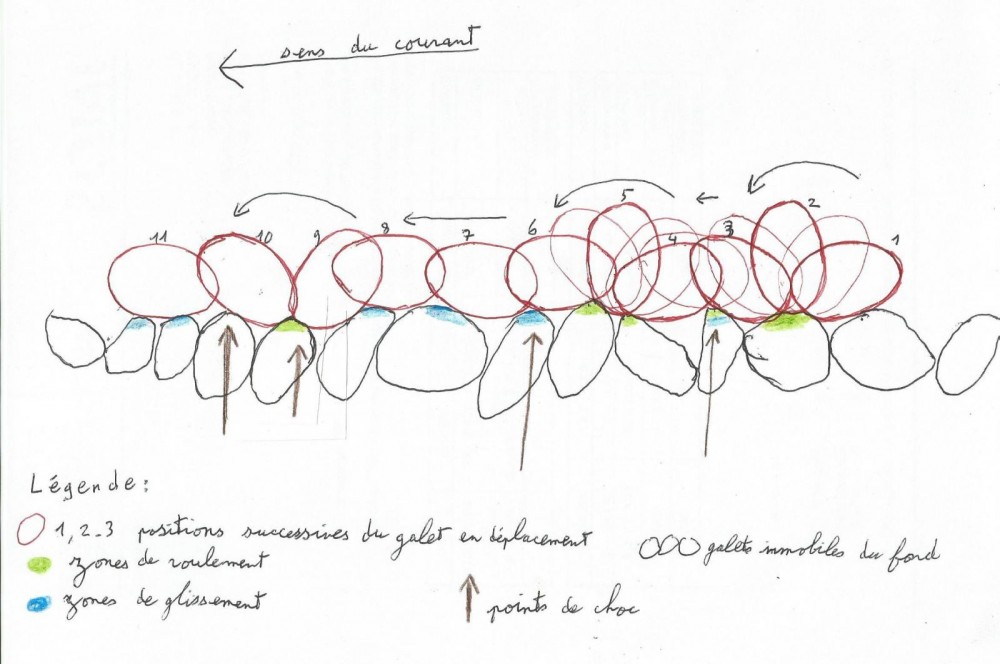 sens du courant
11 10 9 8 7 6 5 4 3 2 1
Légende :
1, 2_3 positions successives du galet en déplacement
zones de roulement
galets immobiles du fond
zones de glissement
points de choc